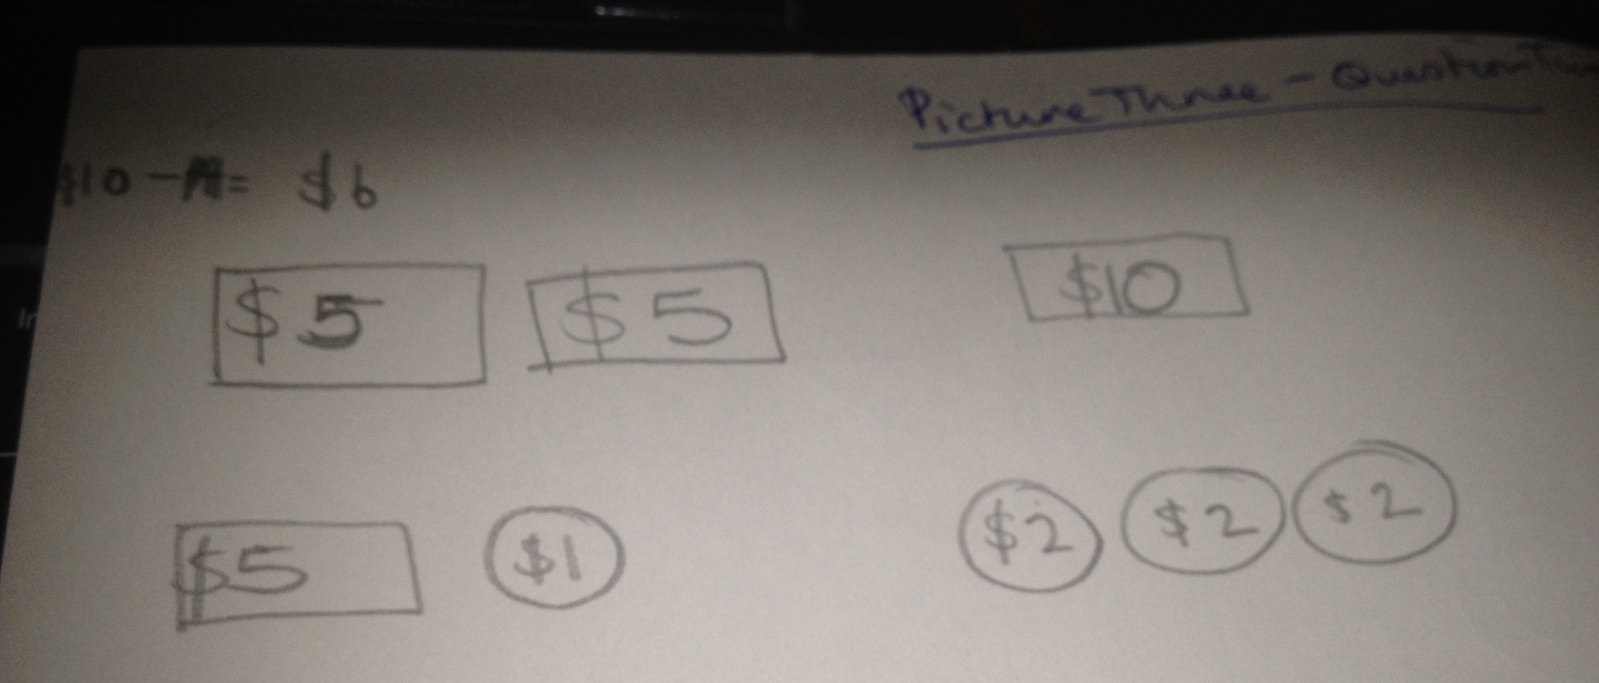 Picture Three - Question
$10 - = $6
$5 $5 $10
$5 $1 $2 $2 $2